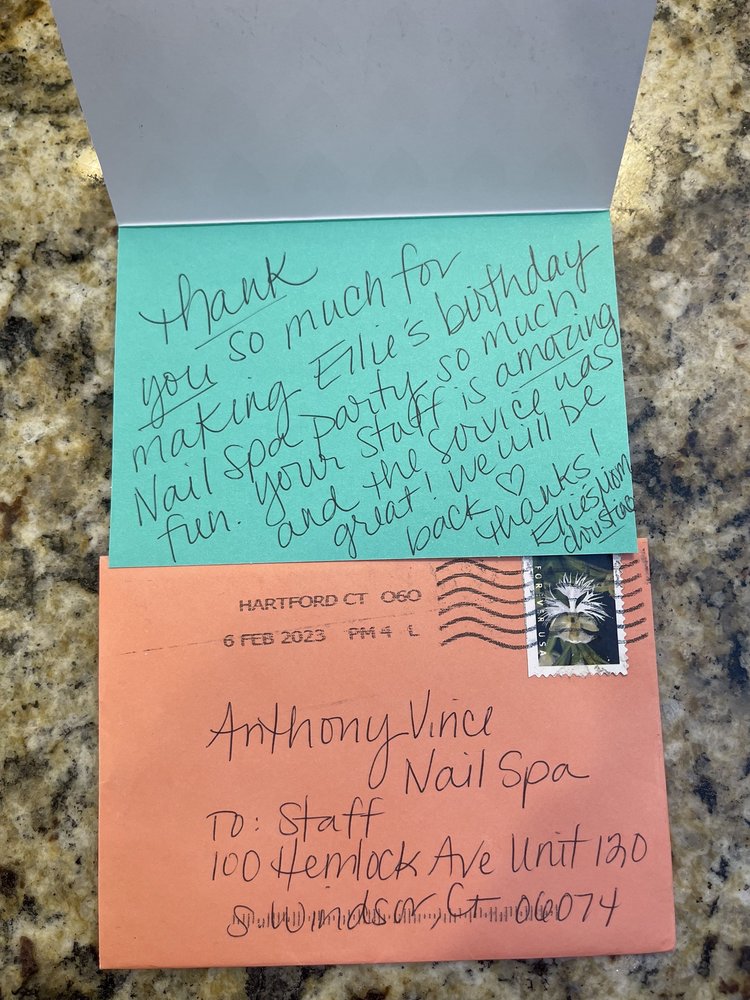 thank
you so much for
making Ellie's birthday
Nail Spa party so much
fun. Your staff is amazing
and the service was
great! We will be
back ♡
thanks!
Ellie's Mom
Christine
HARTFORD CT 060
6 FEB 2023 PM 4 L
FOREVER USA
Anthony Vince
Nail Spa
TO: Staff
100 Hemlock Ave Unit 120
S. Windsor, Ct 06074